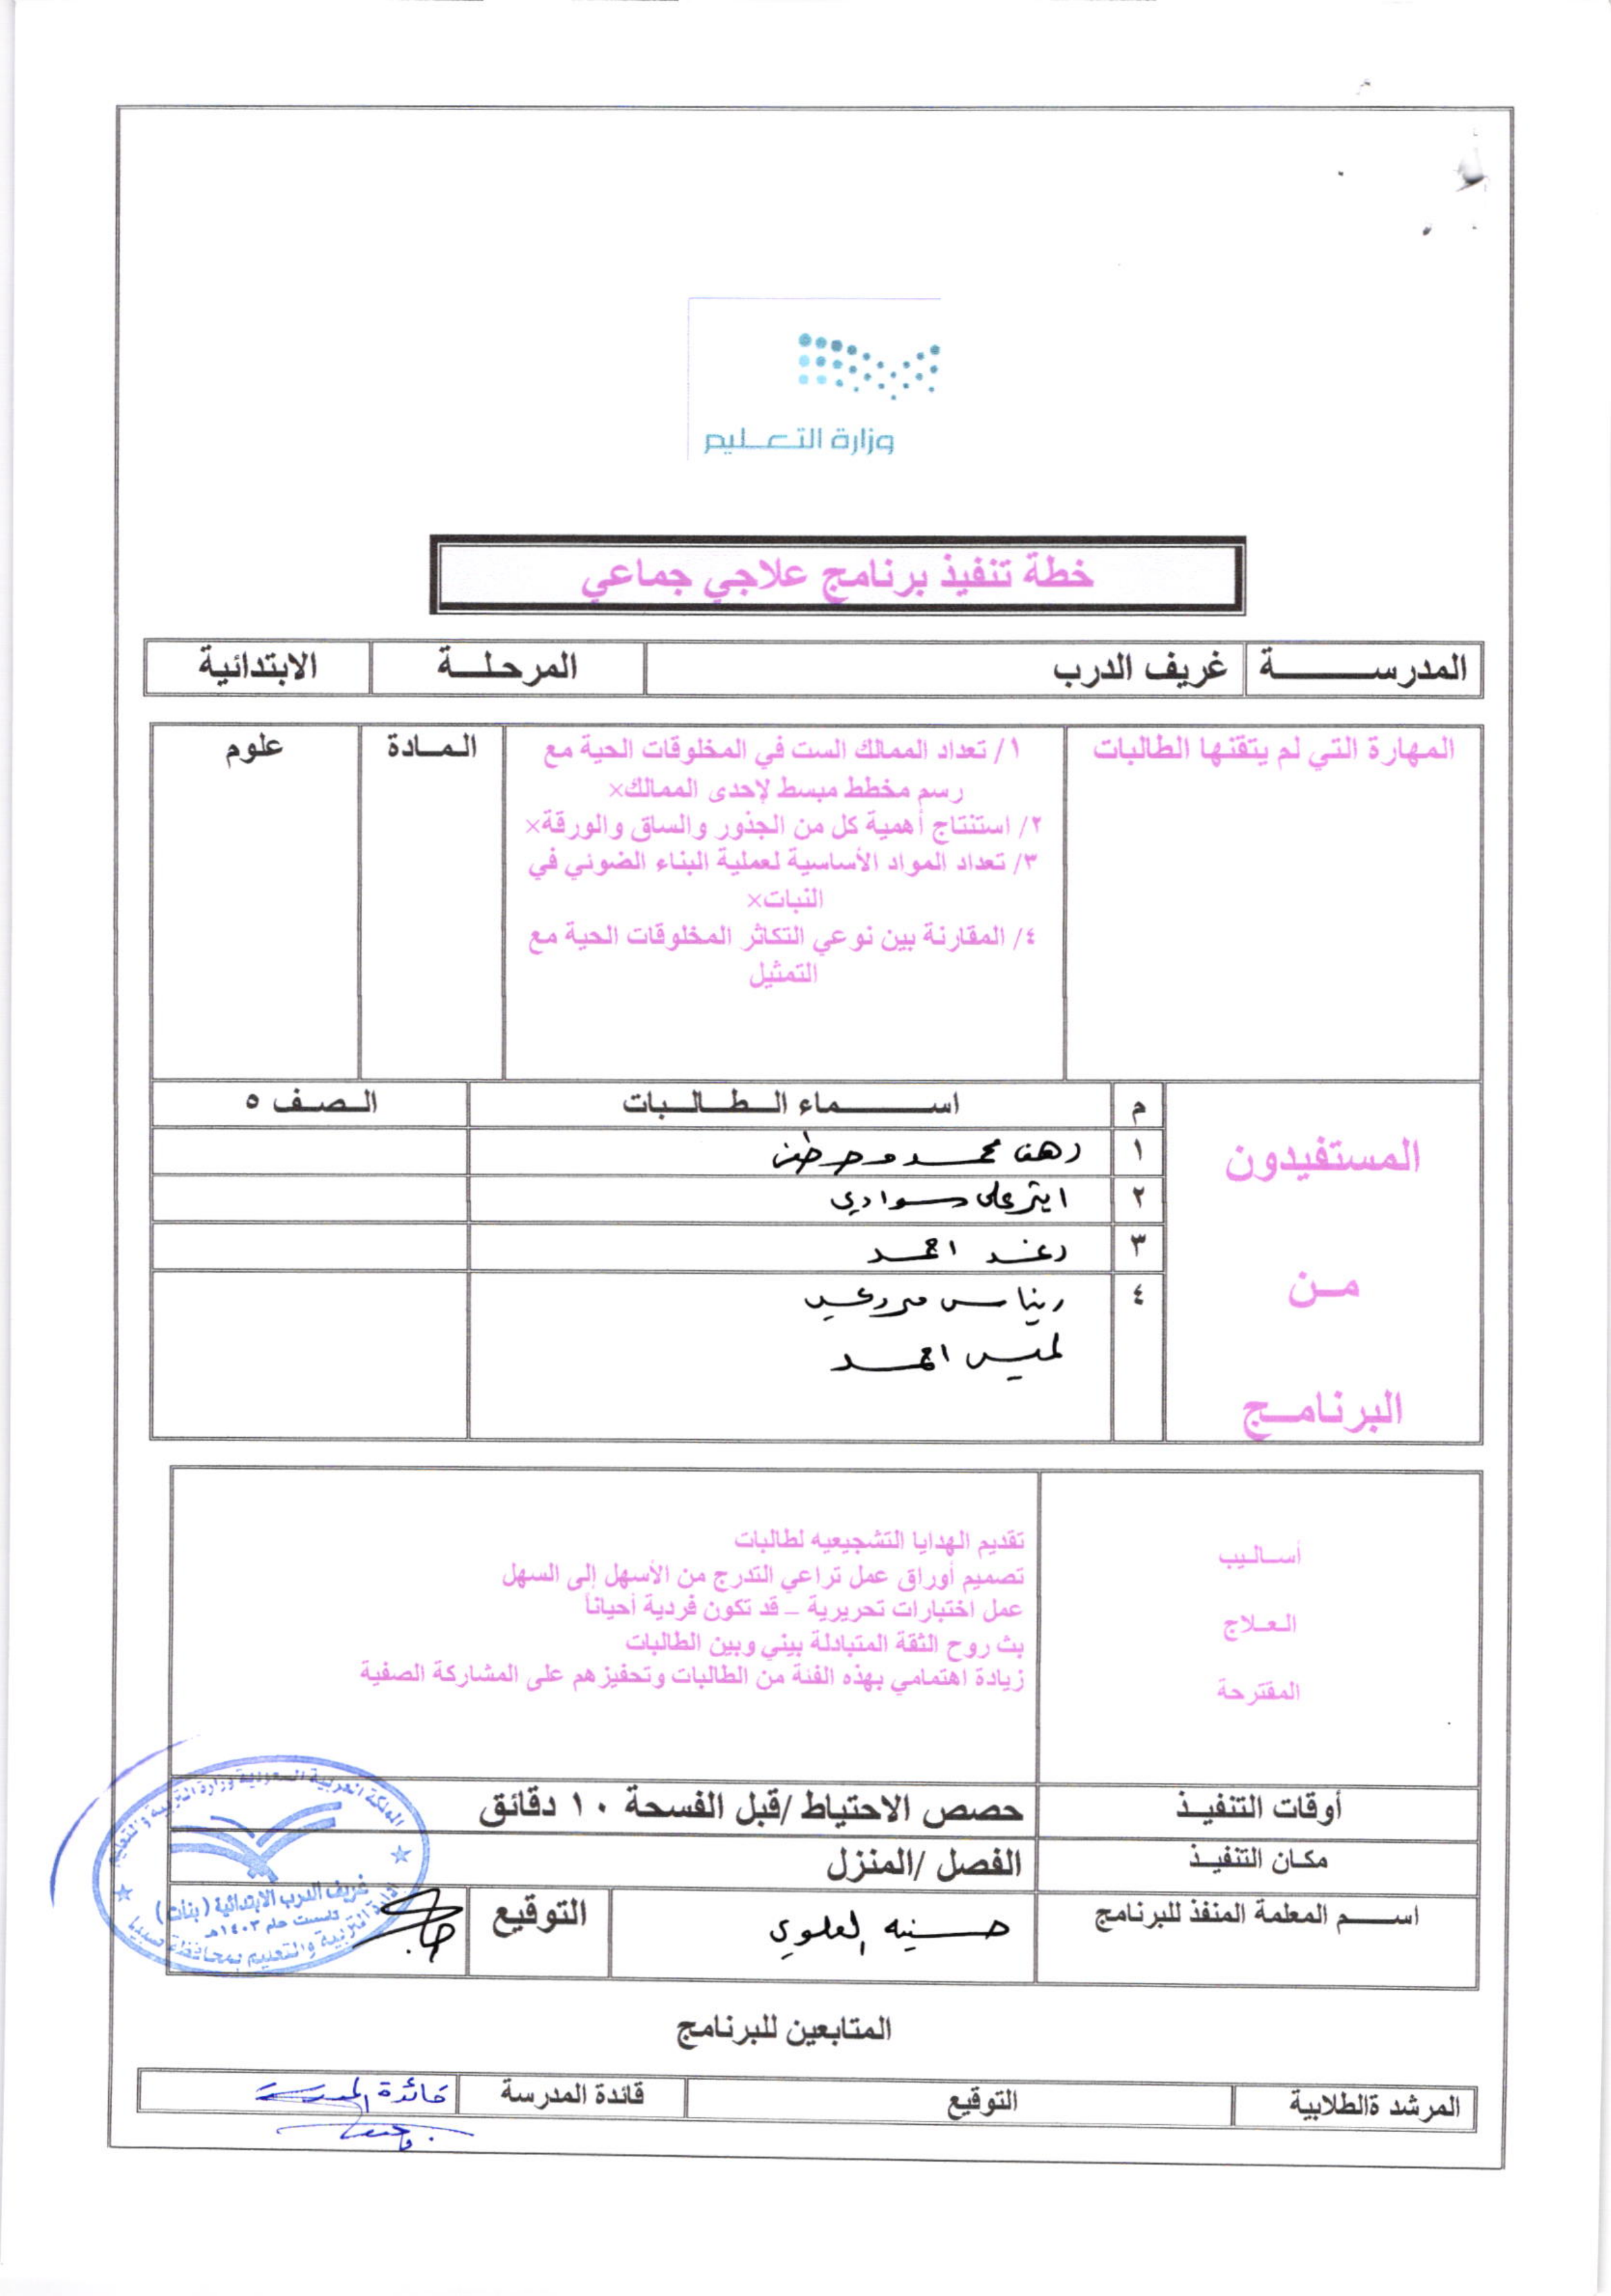 وزارة التعليم
خطة تنفيذ برنامج علاجي جماعي
المدرسة غريف الدرب المرحلة الابتدائية
المهارة التي لم يتقنها الطالبات
١/ تعداد الممالك الست في المخلوقات الحية مع
رسم مخطط مبسط لإحدى الممالك×
٢/ استنتاج أهمية كل من الجذور والساق والورقة×
٣/ تعداد المواد الأساسية لعملية البناء الضوئي في
النبات×
٤/ المقارنة بين نوعي التكاثر المخلوقات الحية مع
التمثيل
المادة علوم
المستفيدون
من
البرنامج
م اسماء الطالبات الصف ٥
١ رهف محمد
٢ علي سوادي
٣ رغد احمد
٤ ريناس
لميس احمد
أساليب
العلاج
المقترحة
تقديم الهدايا التشجيعيه لطالبات
تصميم أوراق عمل تراعي التدرج من الأسهل إلى السهل
عمل اختبارات تحريرية – قد تكون فردية أحياناً
بث روح الثقة المتبادلة بيني وبين الطالبات
زيادة اهتمامي بهذه الفئة من الطالبات وتحفيزهم على المشاركة الصفية
أوقات التنفيذ حصص الاحتياط /قبل الفسحة ١٠ دقائق
مكان التنفيذ الفصل /المنزل
اسم المعلمة المنفذ للبرنامج حسينه العلوي التوقيع
المملكة العربية السعودية وزارة التربية والتعليم
غريف الدرب الابتدائية (بنات)
تاسست عام ١٤٠٣هـ
إدارة التربية والتعليم بمحافظة صبيا
المتابعين للبرنامج
المرشد ةالطلابية التوقيع قائدة المدرسة قائدة المدرسة